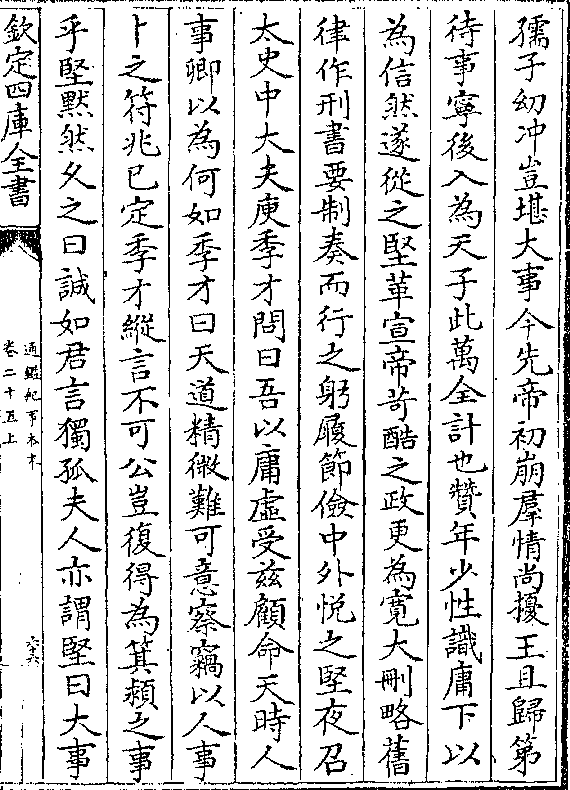 孺子幼冲豈堪大事今先帝初崩羣情尚擾王且歸第
待事寧後入為天子此萬全計也贊年少性識庸下以
為信然遂從之堅革宣帝苛酷之政更為寛大刪略舊
律作刑書要制奏而行之躬履節儉中外悦之堅夜召
太史中大夫庾季才問曰吾以庸虛受兹顧命天時人
事卿以為何如季才曰天道精微難可意察竊以人事
卜之符兆已定季才縱言不可公豈復得為箕潁之事
乎堅黙然久之曰誠如君言獨孤夫人亦謂堅曰大事
欽定四庫全書
通鑑紀事本末
卷二十五上
六十六